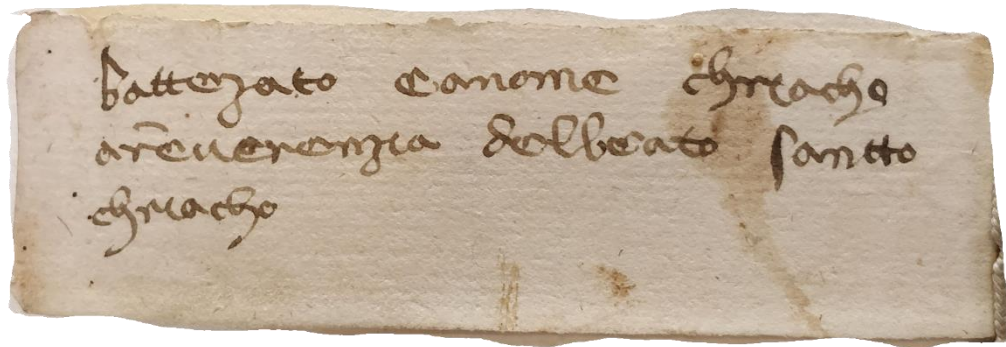 battezato eanome chiriacho
areuerenzia delbeato santto
chiriacho